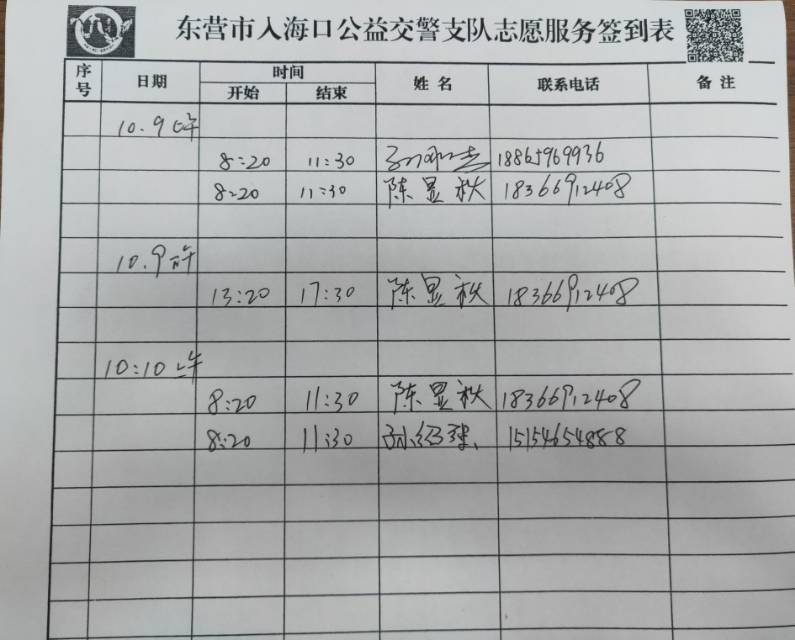 东营市入海口公益交警支队志愿服务签到表
序号 日期 时间 姓名 联系电话 备注
开始 结束
10.9上午
8:20 11:30 18865969936
8:20 11:30 陈显秩 18366912408
10.9下午
13:20 17:30 陈显秩 18366912408
10:10上午
8:20 11:30 陈显秩 18366912408
8:20 11:30 孙绍 15154654888